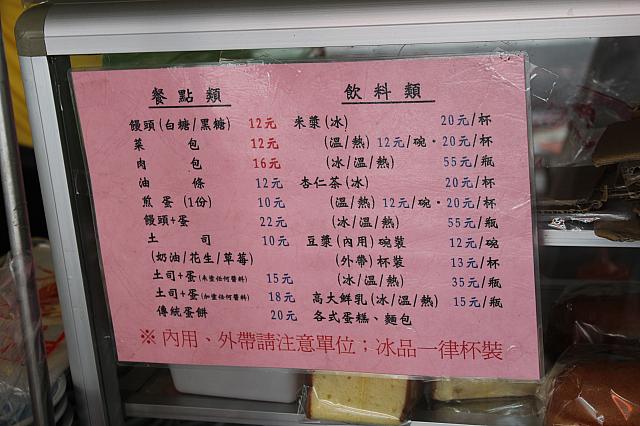 餐點類
饅頭(白糖/黑糖) 12元
菜包 12元
肉包 16元
油條 12元
煎蛋(1份) 10元
饅頭+蛋 22元
土司 10元
(奶油/花生/草莓)
土司+蛋(未塗任何醬料) 15元
土司+蛋(加塗任何醬料) 18元
傳統蛋餅 20元
飲料類
米漿(冰) 20元/杯
(溫/熱) 12元/碗・20元/杯
(冰/溫/熱) 55元/瓶
杏仁茶(冰) 20元/杯
(溫/熱) 12元/碗・20元/杯
(冰/溫/熱) 55元/瓶
豆漿(內用)碗裝 12元/碗
(外帶)杯裝 13元/杯
(冰/溫/熱) 35元/瓶
高大鮮乳(冰/溫/熱) 15元/瓶
各式蛋糕、麵包
※內用、外帶請注意單位；冰品一律杯裝